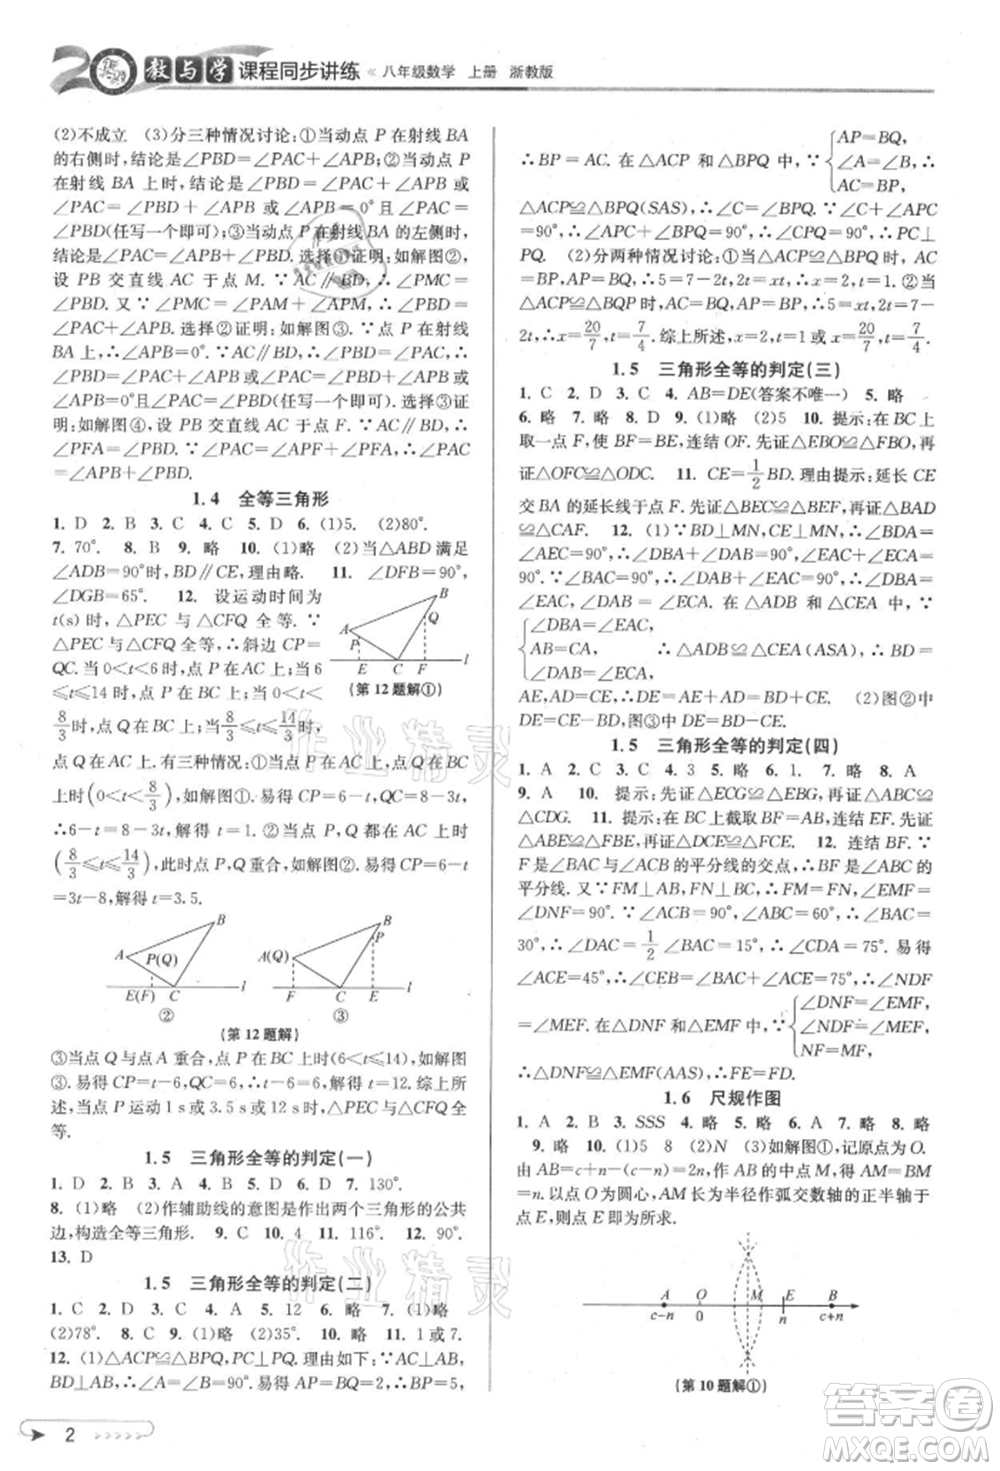 20 教与学 课程同步讲练 « 八年级数学 上册 浙教版
(2)不成立 (3)分三种情况讨论:①当动点 P 在射线 BA
的右侧时,结论是∠PBD=∠PAC+∠APB;②当动点 P
在射线 BA 上时,结论是∠PBD=∠PAC+∠APB 或
∠PAC=∠PBD+∠APB 或∠APB=0°或∠PAC=
∠PBD(任写一个即可);③当动点 P 在射线 BA 的左侧时,
结论是∠PAC=∠PBD+∠APB. 选择①证明:如解图②,
设 PB 交直线 AC 与点 M. ∵AC∥BD,∴∠PMC=
∠PBD. 又∵∠PMC=∠PAM+∠APM,∴∠PBD=
∠PAC+∠APB. 选择②证明:如解图③. ∵点 P 在射线
BA 上,∴∠APB=0°. ∵AC∥BD,∴∠PBD=∠PAC,
∴∠PBD=∠PAC+∠APB 或∠PAC=∠PBD+
∠APB 或∠APB=0°或∠PAC=∠PBD. 选择③证明:证
明:如解图④,设 PB 交直线 AC 于点 F. ∵AC∥BD,∴
∠PFA=∠PBD. ∵∠PAC=∠APB+∠PFA,∴
∠PAC=∠APB+∠PBD.
1.4 全等三角形
1. D 2. D 3. C 4. C 5. D 6. (1)5. (2)80°.
7. 70°. 8. B 9. 略 10. (1)略 (2)当△ABD 满足
∠ADB=90°时,BD∥CE,理由略. 11. ∠DFB=90°,
∠DGB=65°. 12. 设运动时间为
t(s)时,△PEC 与△CFQ 全等. ∵
△PEC 与△CFQ 全等,∴斜边 CP=
QC. 当 0<t<6 时,点 P 在 AC 上;当 6
≤t≤14 时,点 P 在 BC 上. 当 0<t<
8/3时,点 Q 在 BC 上;当8/3≤t≤14/3时,
点 Q 在 AC 上. 有三种情况:①当点 P 在 AC 上,点 Q 在 BC
上时(0<t<8/3),如解图①. 易得 CP=6-t,QC=8-3t,
∴6-t=8-3t,解得 t=1. ②当点 P,Q 都在 AC 上时
(8/3≤t≤14/3),P,Q 重合,如解图②. 易得 CP=6-t=
3t-8,解得 t=3.5.
A B Q P E C F l
(第 12 题解①)
A B P(Q) E(F) C l
②
A B P Q F C E l
③
(第 12 题解)
③当点 Q 与点 A 重合,点 P 在 BC 上时(6<t<14),如解图
③. 易得 CP=t-6,QC=6,∴t-6=6,解得 t=12. 综上所
述,当点 P 运动 1 s或 3.5 s或 12 s 时,△PEC 与△CFQ 全
等.
1.5 三角形全等的判定(一)
1. D 2. D 3. B 4. C 5. 略 6. 略 7. 130°.
8. (1)略 (2)作辅助线的意图是作出两个三角形的公共
边,构造全等三角形. 9. C 10. 4 11. 116°. 12. 略
13. D
1.5 三角形全等的判定(二)
1. C 2. D 3. C 4. A 5. 12 6. 略 7. (1)略
(2)78°. 8. C 9. (1)略 (2)35°. 10. B 11. 略
12. (1)△ACP≌△BPQ,PC⊥PQ. 理由如下:∵AC⊥AB,
BD⊥AB,∴∠A=∠B=90°. ∵AP=BQ=2,∴BP=5,
∴BP=AC. 在△ACP 和△BPQ 中,∵{AP=BQ, ∠A=∠B, ∴ AC=BP,
△ACP≌△BPQ(SAS),∴∠C=∠BPQ. ∵∠C+∠APC
=90°,∴∠APC+∠BPQ=90°,∴∠CPQ=90°,∴PC⊥
PQ. (2)分两种情况讨论:①若△ACP≌△BPQ,则 AC=
BP,AP=BQ,∴5=7-2t,2t=xt,∴x=2,t=1. ②若
△ACP≌△BQP,则 AC=BQ,AP=BP,∴5=xt,2t=7-
2t,∴x=20/7,t=7/4. 综上所述,x=2,t=1或x=20/7,t=7/4.
1.5 三角形全等的判定(三)
1. C 2. D 3. C 4. AB=DE(答案不唯一) 5. 略
6. 略 7. 略 8. D 9. (1)略 (2)5 10. 提示:在 BC 上
取一点 F 使 BF=BE,连结 OF. 先证△EBO≌△FBO,再
证△OFC≌△ODC. 11. CE=1/2BD. 理由提示:延长 CE
交 BA 的延长线于点 F. 先证△BEC≌△BEF,再证△BAD
≌△CAF. 12. (1)∵BD⊥MN,CE⊥MN,∴∠BDA=
∠AEC=90°,∴∠DBA+∠DAB=90°,∠EAC+∠ECA
=90°. ∵∠BAC=90°,∴∠DAB+∠EAC=90°,∴∠DBA
=∠EAC,∠DAB=∠ECA. 在△DBA 和△EAC 中,∵
{∠DBA=∠EAC, AB=CA, ∠DAB=∠ECA, ∴△DBA≌△EAC(ASA),∴BD=
AE,AD=CE. ∵AE=AD+DE,∴BD=CE+DE. (2)图②中
DE=CE-BD,图③中 DE=BD+CE.
1.5 三角形全等的判定(四)
1. A 2. C 3. B 4. 3 5. 略 6. 1. 7. 略 8. A
9. A 10. 提示:先证△ECG≌△EBG,再证△ACG≌
△ADG. 11. 提示:在 BC 上截取 BF=AB,连结 EF. 先证
△ABE≌△FBE,再证△DCE≌△FCE. 12. 连结 BF. ∵
F 是∠BAC 与∠ACB 的平分线的交点,∴BF 是∠ABC 的
平分线. 又∵FM⊥AB,FN⊥BC,∴FM=FN,∠EMF=
∠DNF=90°. ∵∠ACB=90°,∠ABC=60°,∴∠BAC=
30°,∴∠DAC=1/2∠BAC=15°,∴∠CDA=75°. 易得
∠ACE=45°,∴∠CEB=∠BAC+∠ACE=75°,∴∠NDF
=∠MEF. 在△DNF 和△EMF 中,∵{∠DNF=∠EMF, ∠NDF=∠MEF, NF=MF,
∴△DNF≌△EMF(AAS),∴FE=FD.
1.6 尺规作图
1. A 2. B 3. SSS 4. 略 5. 略 6. 略 7. 略 8. 略
9. 略 10. (1)5 8 (2)N (3)如解图①,记原点为 O.
由 AB=c+n-(c-n)=2n,作 AB 的中点 M,得 AM=BM
=n. 以点 O 为圆心,AM 长为半径作弧交数轴的正半轴于
点 E,则点 E 即为所求.
A O M E B
c-n 0 1 n c+n x
(第 10 题解①)
2
作业精灵
作业精灵
答案圈
MXQE.COM